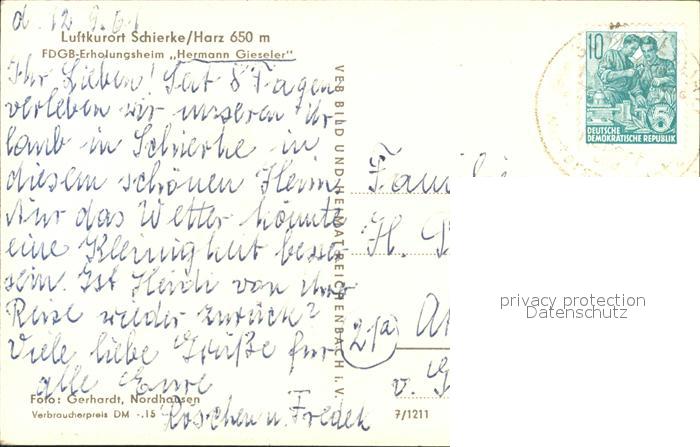 d. 12.9.61
Luftkurort Schierke/Harz 650 m
FDGB-Erholungsheim „Hermann Gieseler"
Ihr Lieben! Seit 8 Tagen
verleben wir unseren Ur
laub in Schierke in
diesem schönen Heim.
Nur das Wetter könnte
eine Kleinigkeit besser
sein. Ist Heidi von ihrer
Reise wieder zurück?
Viele liebe Grüße für
alle Eure
Röschen u. Fredek
Foto: Gerhardt, Nordhausen
Verbraucherpreis DM -.15
7/1211
VEB BILD UND HEIMAT REICHENBACH i. V.
10
5
DEUTSCHE
DEMOKRATISCHE REPUBLIK
Famili
H.
21a)
v.
privacy protection
Datenschutz